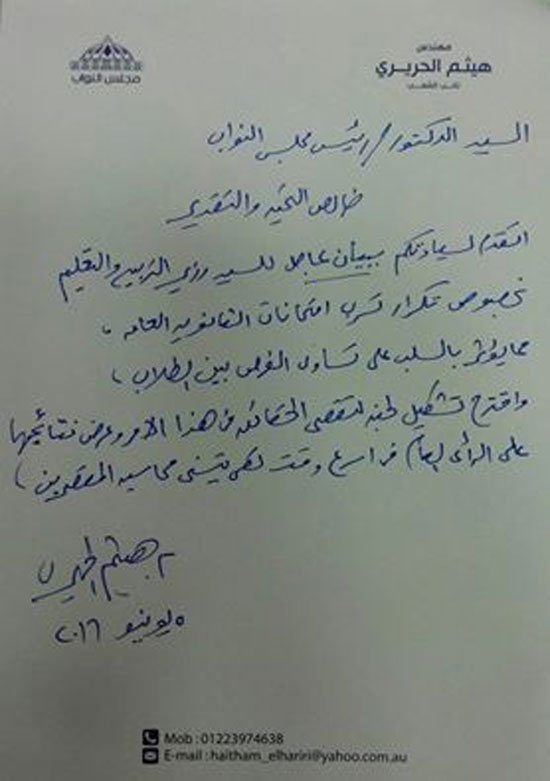 مهندس
هيثم الحريري
نائب الشعب
مجلس النواب
السيد الدكتور / رئيس مجلس النواب
خالص التحية والتقدير
اتقدم لسيادتكم ببيان عاجل للسيد وزير التربية والتعليم
بخصوص تكرار تسرب امتحانات الثانوية العامه ،
مما يؤثر بالسلب على تساوى الفرص بين الطلاب ،
واقترح تشكيل لجنه لتقصى الحقائق فى هذا الأمر وعرض نتائجها
على الرأى العام فى اسرع وقت لكى يتسنى محاسبه المقصرين ،
م هيثم الحريرى
٥ يونيو ٢٠١٦
Mob : 01223974638
E-mail : haitham_elhariri@yahoo.com.au